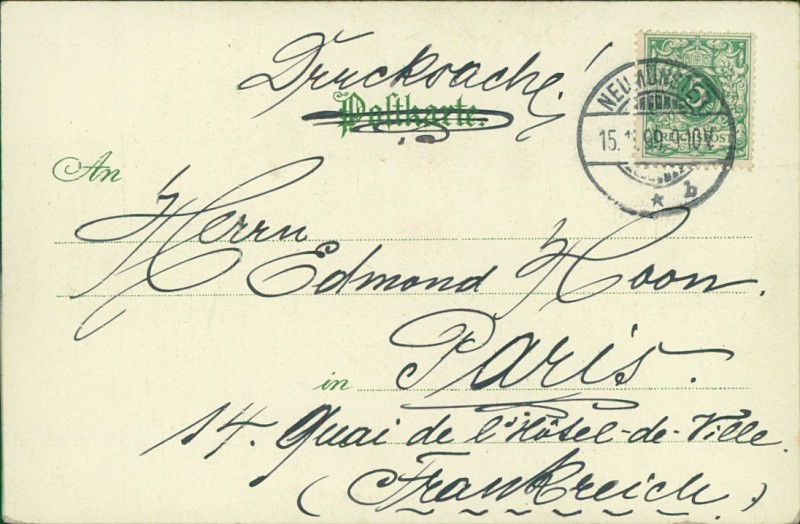 Drucksache!
Postkarte.
NEUMÜNSTER
15.
99. 9-10V.
* b
5
REICHSPOST
An
Herrn
Edmond Hoon.
in Paris.
14. Quai de l'Hôtel-de-Ville.
(Frankreich.)